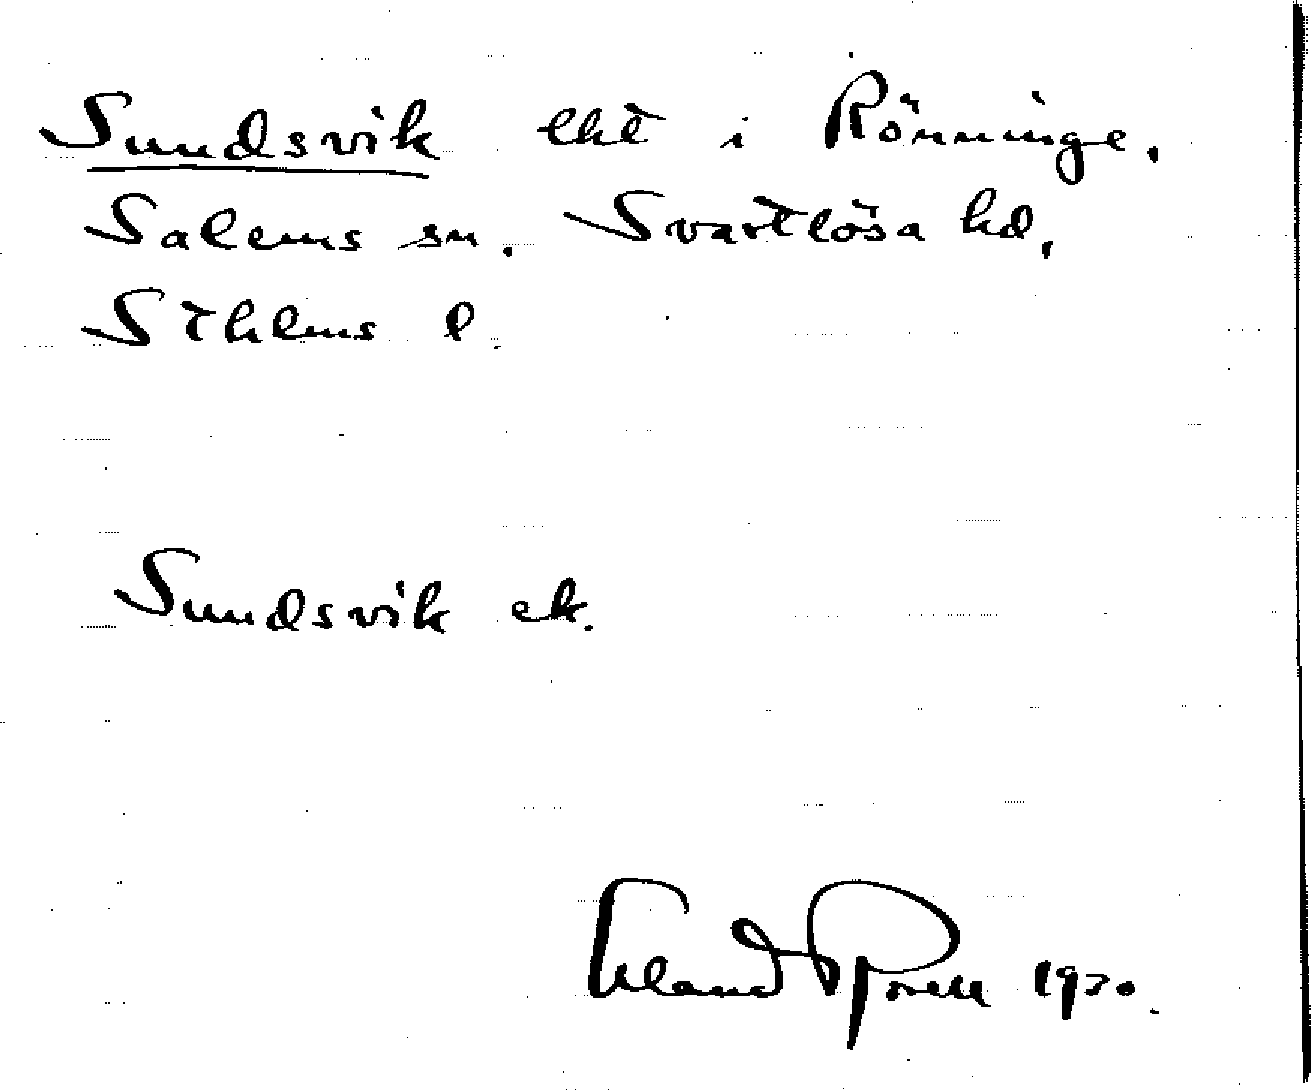 Sundsvik lht i Rönninge,
Salems sn. Svartlösa hd,
Sthlms l.
Sundsvik ek.
Erland Rosell 1970.